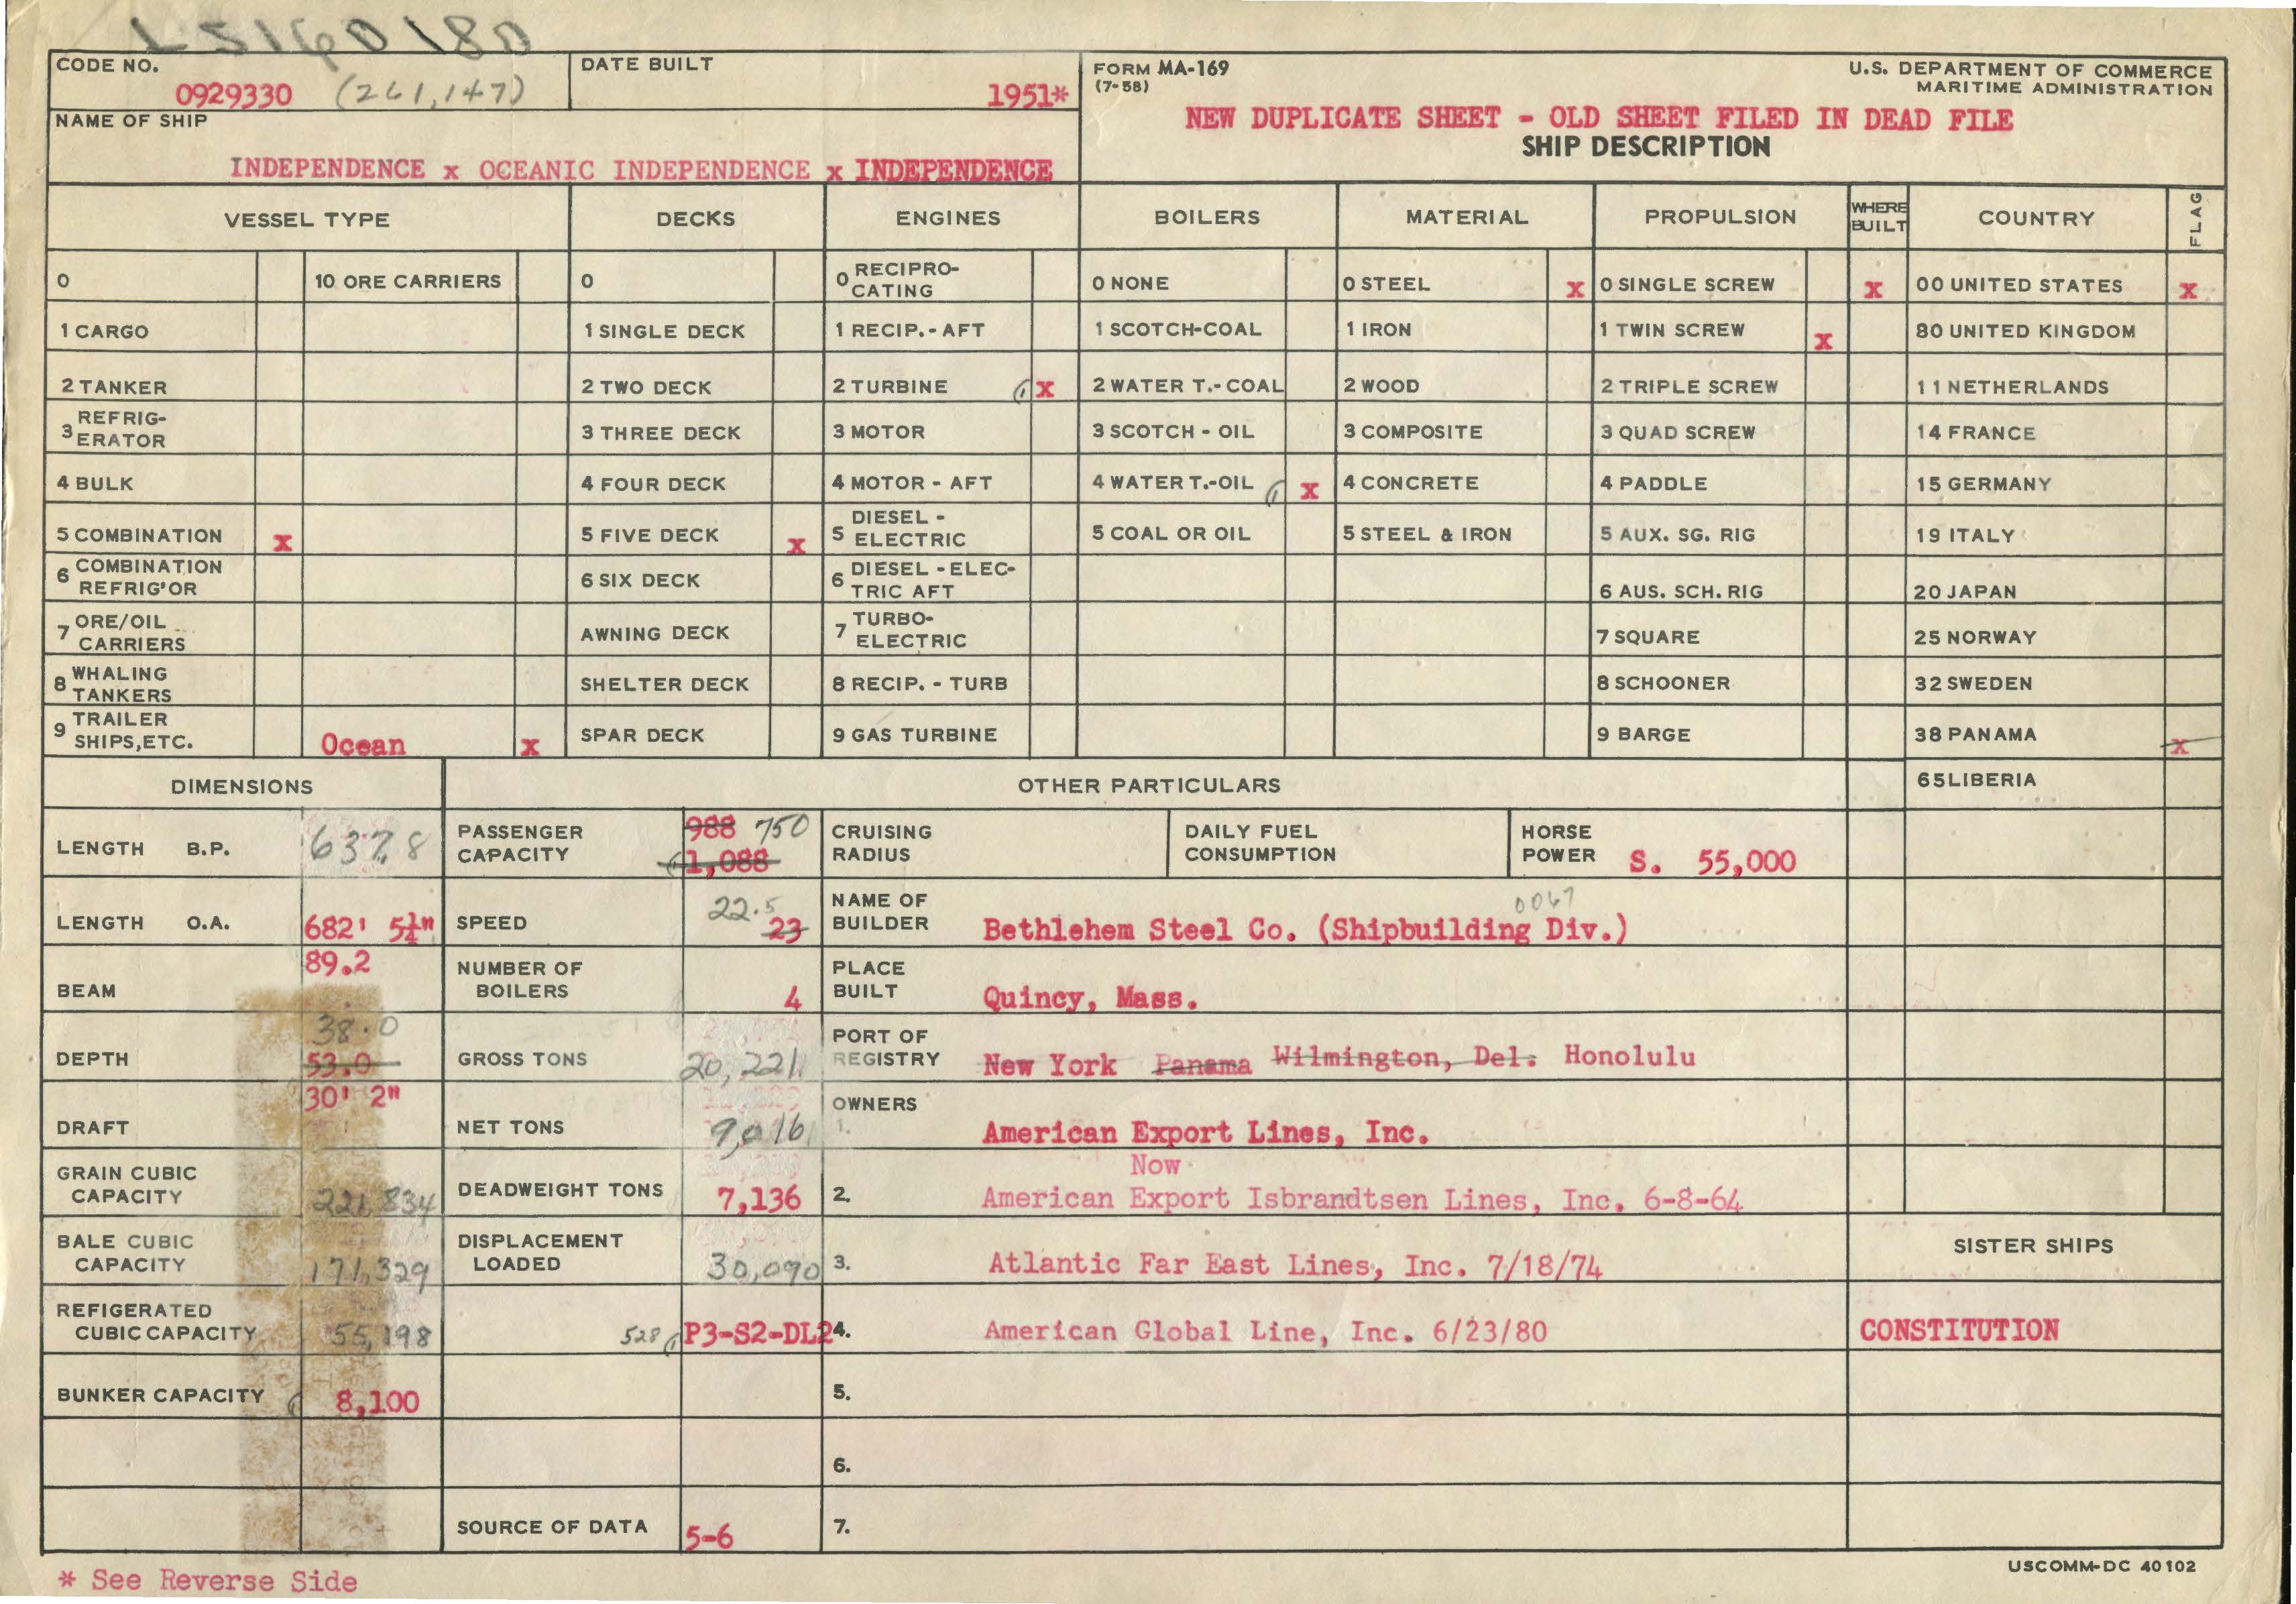 L5160180
CODE NO.
0929330 (261,147)
DATE BUILT
1951*
FORM MA-169
(7-58)
U.S. DEPARTMENT OF COMMERCE
MARITIME ADMINISTRATION
NEW DUPLICATE SHEET - OLD SHEET FILED IN DEAD FILE
SHIP DESCRIPTION
NAME OF SHIP
INDEPENDENCE x OCEANIC INDEPENDENCE x INDEPENDENCE
VESSEL TYPE DECKS ENGINES BOILERS MATERIAL PROPULSION WHERE BUILT COUNTRY FLAG
0 10 ORE CARRIERS 0 0 RECIPRO-CATING 0 NONE 0 STEEL x 0 SINGLE SCREW x 00 UNITED STATES x
1 CARGO 1 SINGLE DECK 1 RECIP.- AFT 1 SCOTCH-COAL 1 IRON 1 TWIN SCREW x 80 UNITED KINGDOM
2 TANKER 2 TWO DECK 2 TURBINE x 2 WATER T.- COAL 2 WOOD 2 TRIPLE SCREW 11 NETHERLANDS
3 REFRIG-ERATOR 3 THREE DECK 3 MOTOR 3 SCOTCH - OIL 3 COMPOSITE 3 QUAD SCREW 14 FRANCE
4 BULK 4 FOUR DECK 4 MOTOR - AFT 4 WATER T.-OIL x 4 CONCRETE 4 PADDLE 15 GERMANY
5 COMBINATION x 5 FIVE DECK x 5 DIESEL - ELECTRIC 5 COAL OR OIL 5 STEEL & IRON 5 AUX. SG. RIG 19 ITALY
6 COMBINATION REFRIG'OR 6 SIX DECK 6 DIESEL - ELEC-TRIC AFT 6 AUS. SCH. RIG 20 JAPAN
7 ORE/OIL CARRIERS AWNING DECK 7 TURBO-ELECTRIC 7 SQUARE 25 NORWAY
8 WHALING TANKERS SHELTER DECK 8 RECIP. - TURB 8 SCHOONER 32 SWEDEN
9 TRAILER SHIPS,ETC. Ocean x SPAR DECK 9 GAS TURBINE 9 BARGE 38 PANAMA x
DIMENSIONS OTHER PARTICULARS 65 LIBERIA
LENGTH B.P. 637.8 PASSENGER CAPACITY 988 750 1,088 CRUISING RADIUS DAILY FUEL CONSUMPTION HORSE POWER S. 55,000
LENGTH O.A. 682' 5¼" SPEED 22.5 23 NAME OF BUILDER Bethlehem Steel Co. (Shipbuilding Div.) 0067
BEAM 89.2 NUMBER OF BOILERS 4 PLACE BUILT Quincy, Mass.
DEPTH 38.0 53.0 GROSS TONS 20,221 PORT OF REGISTRY New York Panama Wilmington, Del. Honolulu
DRAFT 30' 2" NET TONS 9,016 OWNERS 1. American Export Lines, Inc.
Now
GRAIN CUBIC CAPACITY 221,834 DEADWEIGHT TONS 7,136 2. American Export Isbrandtsen Lines, Inc. 6-8-64
BALE CUBIC CAPACITY 171,329 DISPLACEMENT LOADED 30,090 3. Atlantic Far East Lines, Inc. 7/18/74 SISTER SHIPS
REFIGERATED CUBIC CAPACITY 55,198 528 P3-S2-DL2 4. American Global Line, Inc. 6/23/80 CONSTITUTION
BUNKER CAPACITY 8,100 5.
6.
SOURCE OF DATA 5-6 7.
* See Reverse Side
USCOMM-DC 40102